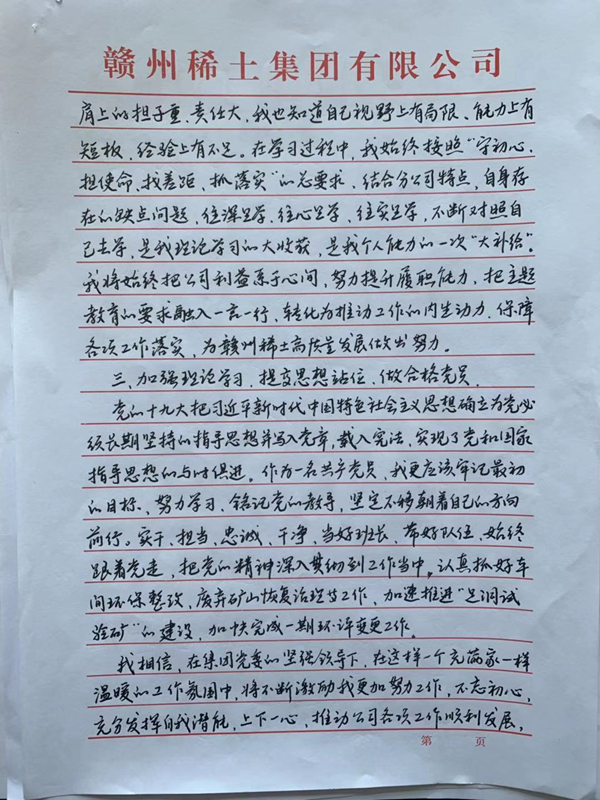 赣州稀土集团有限公司
肩上的担子重、责任大,我也知道自己视野上有局限、能力上有
短板,经验上有不足。在学习过程中,我始终按照“守初心、
担使命、找差距、抓落实”的总要求,结合分公司特点,自身存
在的缺点问题,往深里学、往心里学、往实里学,不断对照自
己去学,是我理论学习的大收获,是我个人能力的一次“大补给”。
我将始终把公司利益系于心间,努力提升履职能力,把主题
教育的要求融入一言一行,转化为推动工作的内生动力,保障
各项工作落实,为赣州稀土高质量发展做出努力。
三、加强理论学习,提高思想站位,做合格党员。
党的十九大把习近平新时代中国特色社会主义思想确立为党必
须长期坚持的指导思想并写入党章,载入宪法,实现了党和国家
指导思想的与时俱进。作为一名共产党员,我更应该牢记最初
的目标,努力学习,铭记党的教导,坚定不移朝着自己的方向
前行。实干、担当、忠诚、干净,当好班长、带好队伍,始终
跟着党走,把党的精神深入贯彻到工作当中。认真抓好车
间环保整改,废弃矿山恢复治理等工作,加速推进“足洞试
验矿”的建设,加快完成一期环评变更工作。
我相信,在集团党委的坚强领导下,在这样一个充满家一样
温暖的工作氛围中,将不断激励我更加努力工作,不忘初心,
充分发挥自我潜能,上下一心,推动公司各项工作顺利发展,
第 页